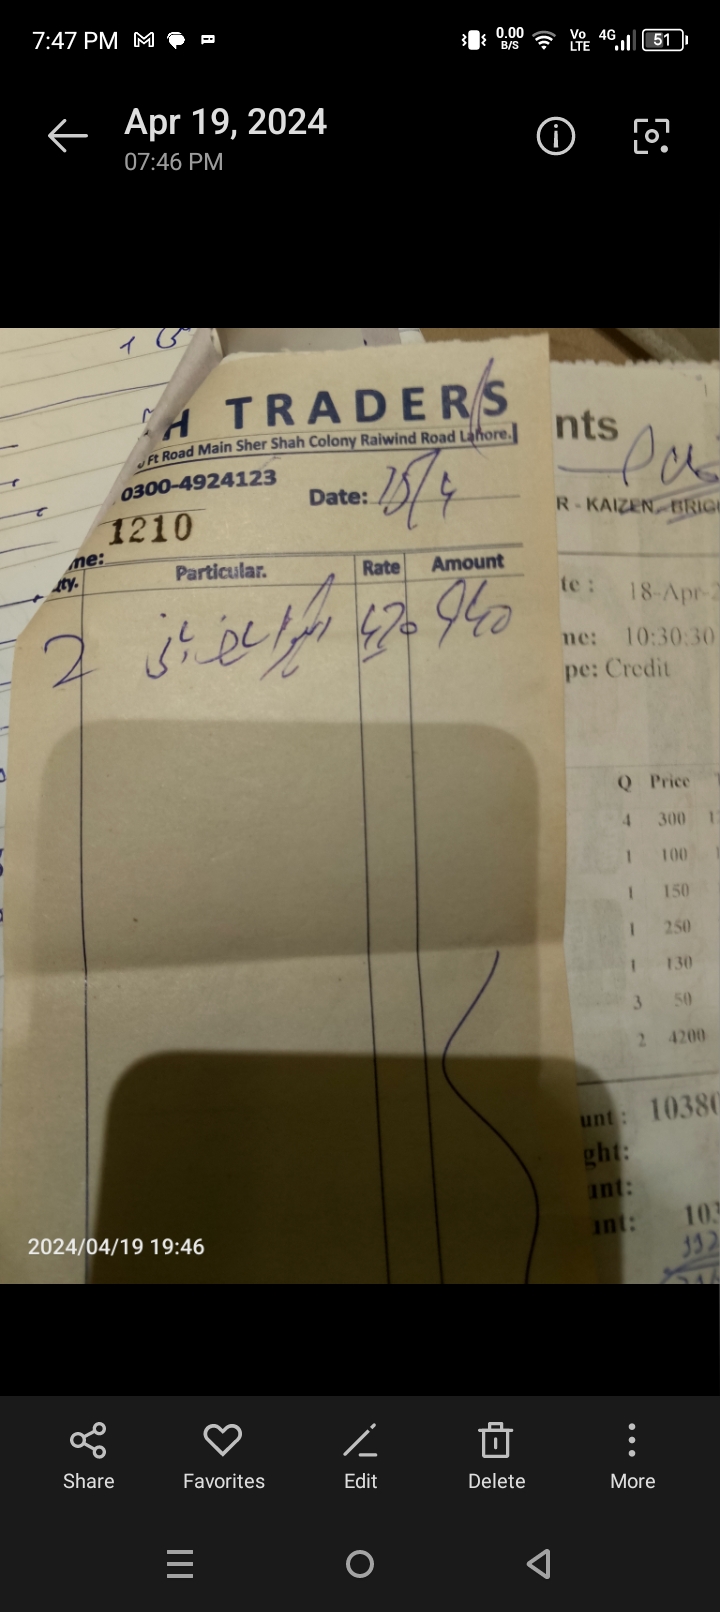 7:47 PM
0.00 B/S
Vo LTE
4G
51
Apr 19, 2024
07:46 PM
H TRADERS
Ft Road Main Sher Shah Colony Raiwind Road Lahore.
0300-4924123
Date: 15/4
1210
me:
ty. Particular. Rate Amount
2 470 940
nts
R - KAIZEN, BRIG
te : 18-Apr-2
me: 10:30:30
pe: Credit
Q Price
4 300
1 100
1 150
1 250
1 130
3 50
2 4200
unt : 10380
ght:
ant:
unt: 103
2024/04/19 19:46
Share
Favorites
Edit
Delete
More